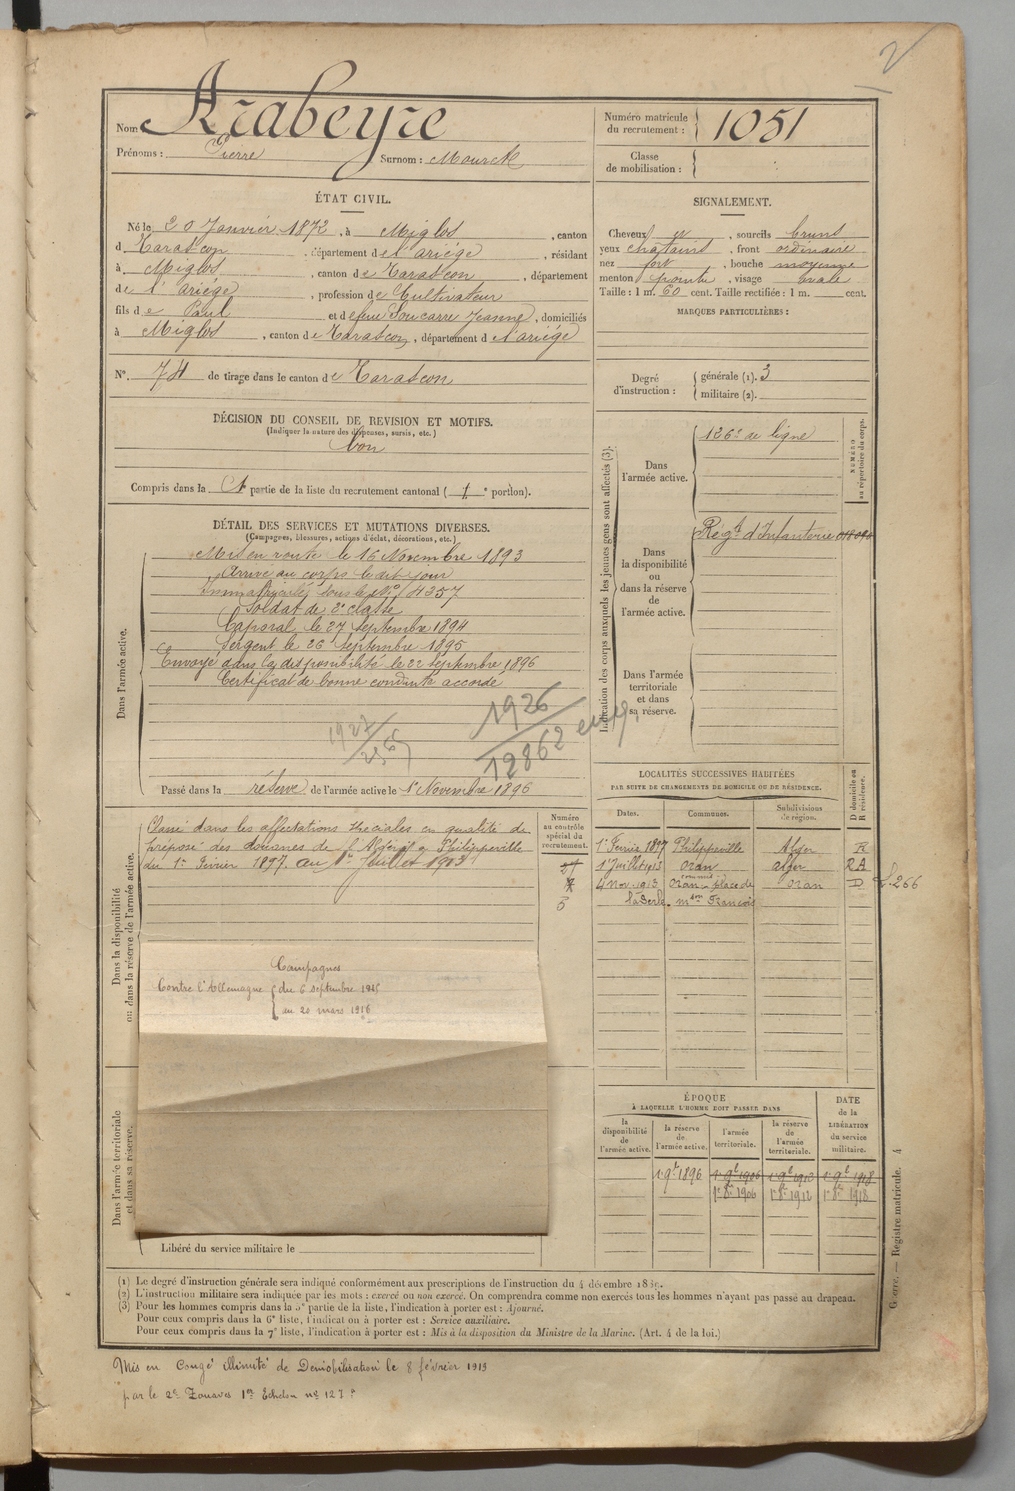 2
Nom Arabeyre
Prénoms : Pierre Surnom : Mouret
Numéro matricule du recrutement : 1051
Classe de mobilisation :
ÉTAT CIVIL.
Né le 20 Janvier 1872, à Miglos, canton
d Tarascon, département de l'ariége, résidant
à Miglos, canton de Tarascon, département
de l'ariége, profession de Cultivateur
fils de Paul et d efeue Soucarre Jeanne, domiciliés
à Miglos, canton de Tarascon, département d l'ariége
N° 74 de tirage dans le canton de Tarascon
SIGNALEMENT.
Cheveux, sourcils bruns
yeux chatains, front ordinaire
nez fort, bouche moyenne
menton pointu, visage ovale
Taille : 1 m. 60 cent. Taille rectifiée : 1 m. cent.
MARQUES PARTICULIÈRES :
Degré d'instruction : générale (1). 3
militaire (2).
DÉCISION DU CONSEIL DE REVISION ET MOTIFS.
(Indiquer la nature des dispenses, sursis, etc.)
bon
Compris dans la partie de la liste du recrutement cantonal ( 1 e portion).
DÉTAIL DES SERVICES ET MUTATIONS DIVERSES.
(Campagnes, blessures, actions d'éclat, décorations, etc.)
Dans l'armée active.
Mis en route le 16 Novembre 1893
Arrivé au corps le dit jour
Immatriculé sous le N° 4357
Soldat de 2e classe
Caporal le 27 Septembre 1894
Sergent le 26 Septembre 1895
Envoyé dans la disponibilité le 22 septembre 1896
Certificat de bonne conduite accordé
1926
12862
1927
Passé dans la réserve de l'armée active le 1er Novembre 1896
Indication des corps auxquels les jeunes gens sont affectés (3).
Dans l'armée active.
126e de ligne
NUMÉRO au répertoire du corps.
Dans la disponibilité ou dans la réserve de l'armée active.
Régt d'Infanterie
Dans l'armée territoriale et dans sa réserve.
Dans la disponibilité ou dans la réserve de l'armée active.
Classé dans les affectations spéciales en qualité de
préposé des douanes de l'Algérie à Philippeville
du 1er Février 1897. au 1er Juillet 1913
Numéro au contrôle spécial du recrutement.
Campagnes
Contre l'Allemagne du 6 septembre 1915
au 20 mars 1916
LOCALITÉS SUCCESSIVES HABITÉES
PAR SUITE DE CHANGEMENTS DE DOMICILE OU DE RÉSIDENCE.
Dates. Communes. Subdivisions de région. D domicile ou R résidence.
1er Février 1897 Philippeville Alger R
1er Juillet 1913 Oran alger RA
4 Nov. 1913 Oran place de Oran D 266
la Perle mson François
ÉPOQUE
À LAQUELLE L'HOMME DOIT PASSER DANS
la disponibilité de l'armée active. la réserve de l'armée active. l'armée territoriale. la réserve de l'armée territoriale. DATE de la LIBÉRATION du service militaire.
1er 9bre 1896 1er 9bre 1906 1er 9bre 1912 1er 9bre 1918
1er 8bre 1906 1er 8bre 1912 1er 8bre 1918
Dans l'armée territoriale et dans sa réserve.
Libéré du service militaire le
(1) Le degré d'instruction générale sera indiqué conformément aux prescriptions de l'instruction du 4 décembre
(2) L'instruction militaire sera indiquée par les mots : exercé ou non exercé. On comprendra comme non exercés tous les hommes n'ayant pas passé au drapeau.
(3) Pour les hommes compris dans la 5e partie de la liste, l'indication à porter est : Ajourné.
Pour ceux compris dans la 6e liste, l'indication à porter est : Service auxiliaire.
Pour ceux compris dans la 7e liste, l'indication à porter est : Mis à la disposition du Ministre de la Marine. (Art. 4 de la loi.)
Guerre. — Registre matricule. 4
Mis en Congé illimité de Démobilisation le 8 février 1919
par le 2e Zouaves 1er Echelon no 127